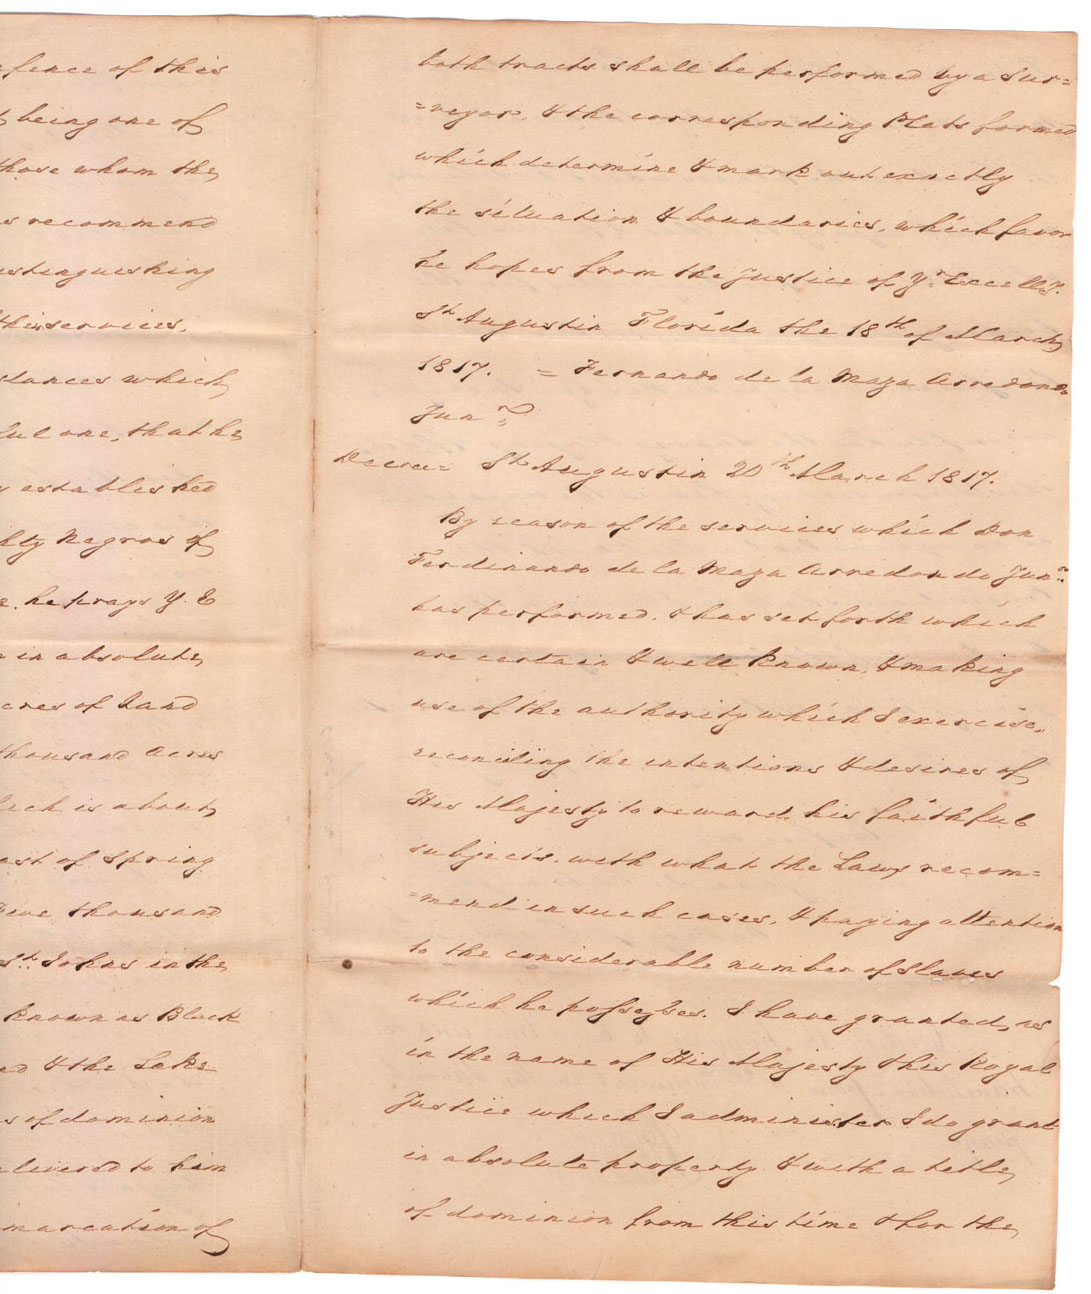 fence of this
being one of
those whom the
recommend
stinguishing
their services,
stances which
ful one, that he
established
ty Negros of
he prays Y. E
in absolute
cres of Land
thousand acres
is about
ast of Spring
five thousand
St. Johns in the
known as Black
& the Lake
of dominion
livered to him
marcation of
both tracts shall be performed by a Sur=
=veyor, & the corresponding Plats formed
which determine & mark out exactly
the situation & boundaries, which favor
he hopes from the Justice of Yr. Excelly.
St. Augustin Florida the 18th of March
1817. = Fernando de la Maza Arredondo
Junr.
Decree = St. Augustin 20th March 1817.
By reason of the services which Don
Ferdinando de la Maza Arredondo Junr.
has performed, & has set forth which
are certain & well known, & making
use of the authority which I exercise,
reconciling the intentions & desires of
His Majesty to reward his faithful
subjects, with what the Laws recom=
=mend in such cases, & paying attention
to the considerable number of Slaves
which he possesses. I have granted, as
in the name of His Majesty & his Royal
Justice which I administer I do grant
in absolute property & with a title
of dominion from this time & for the